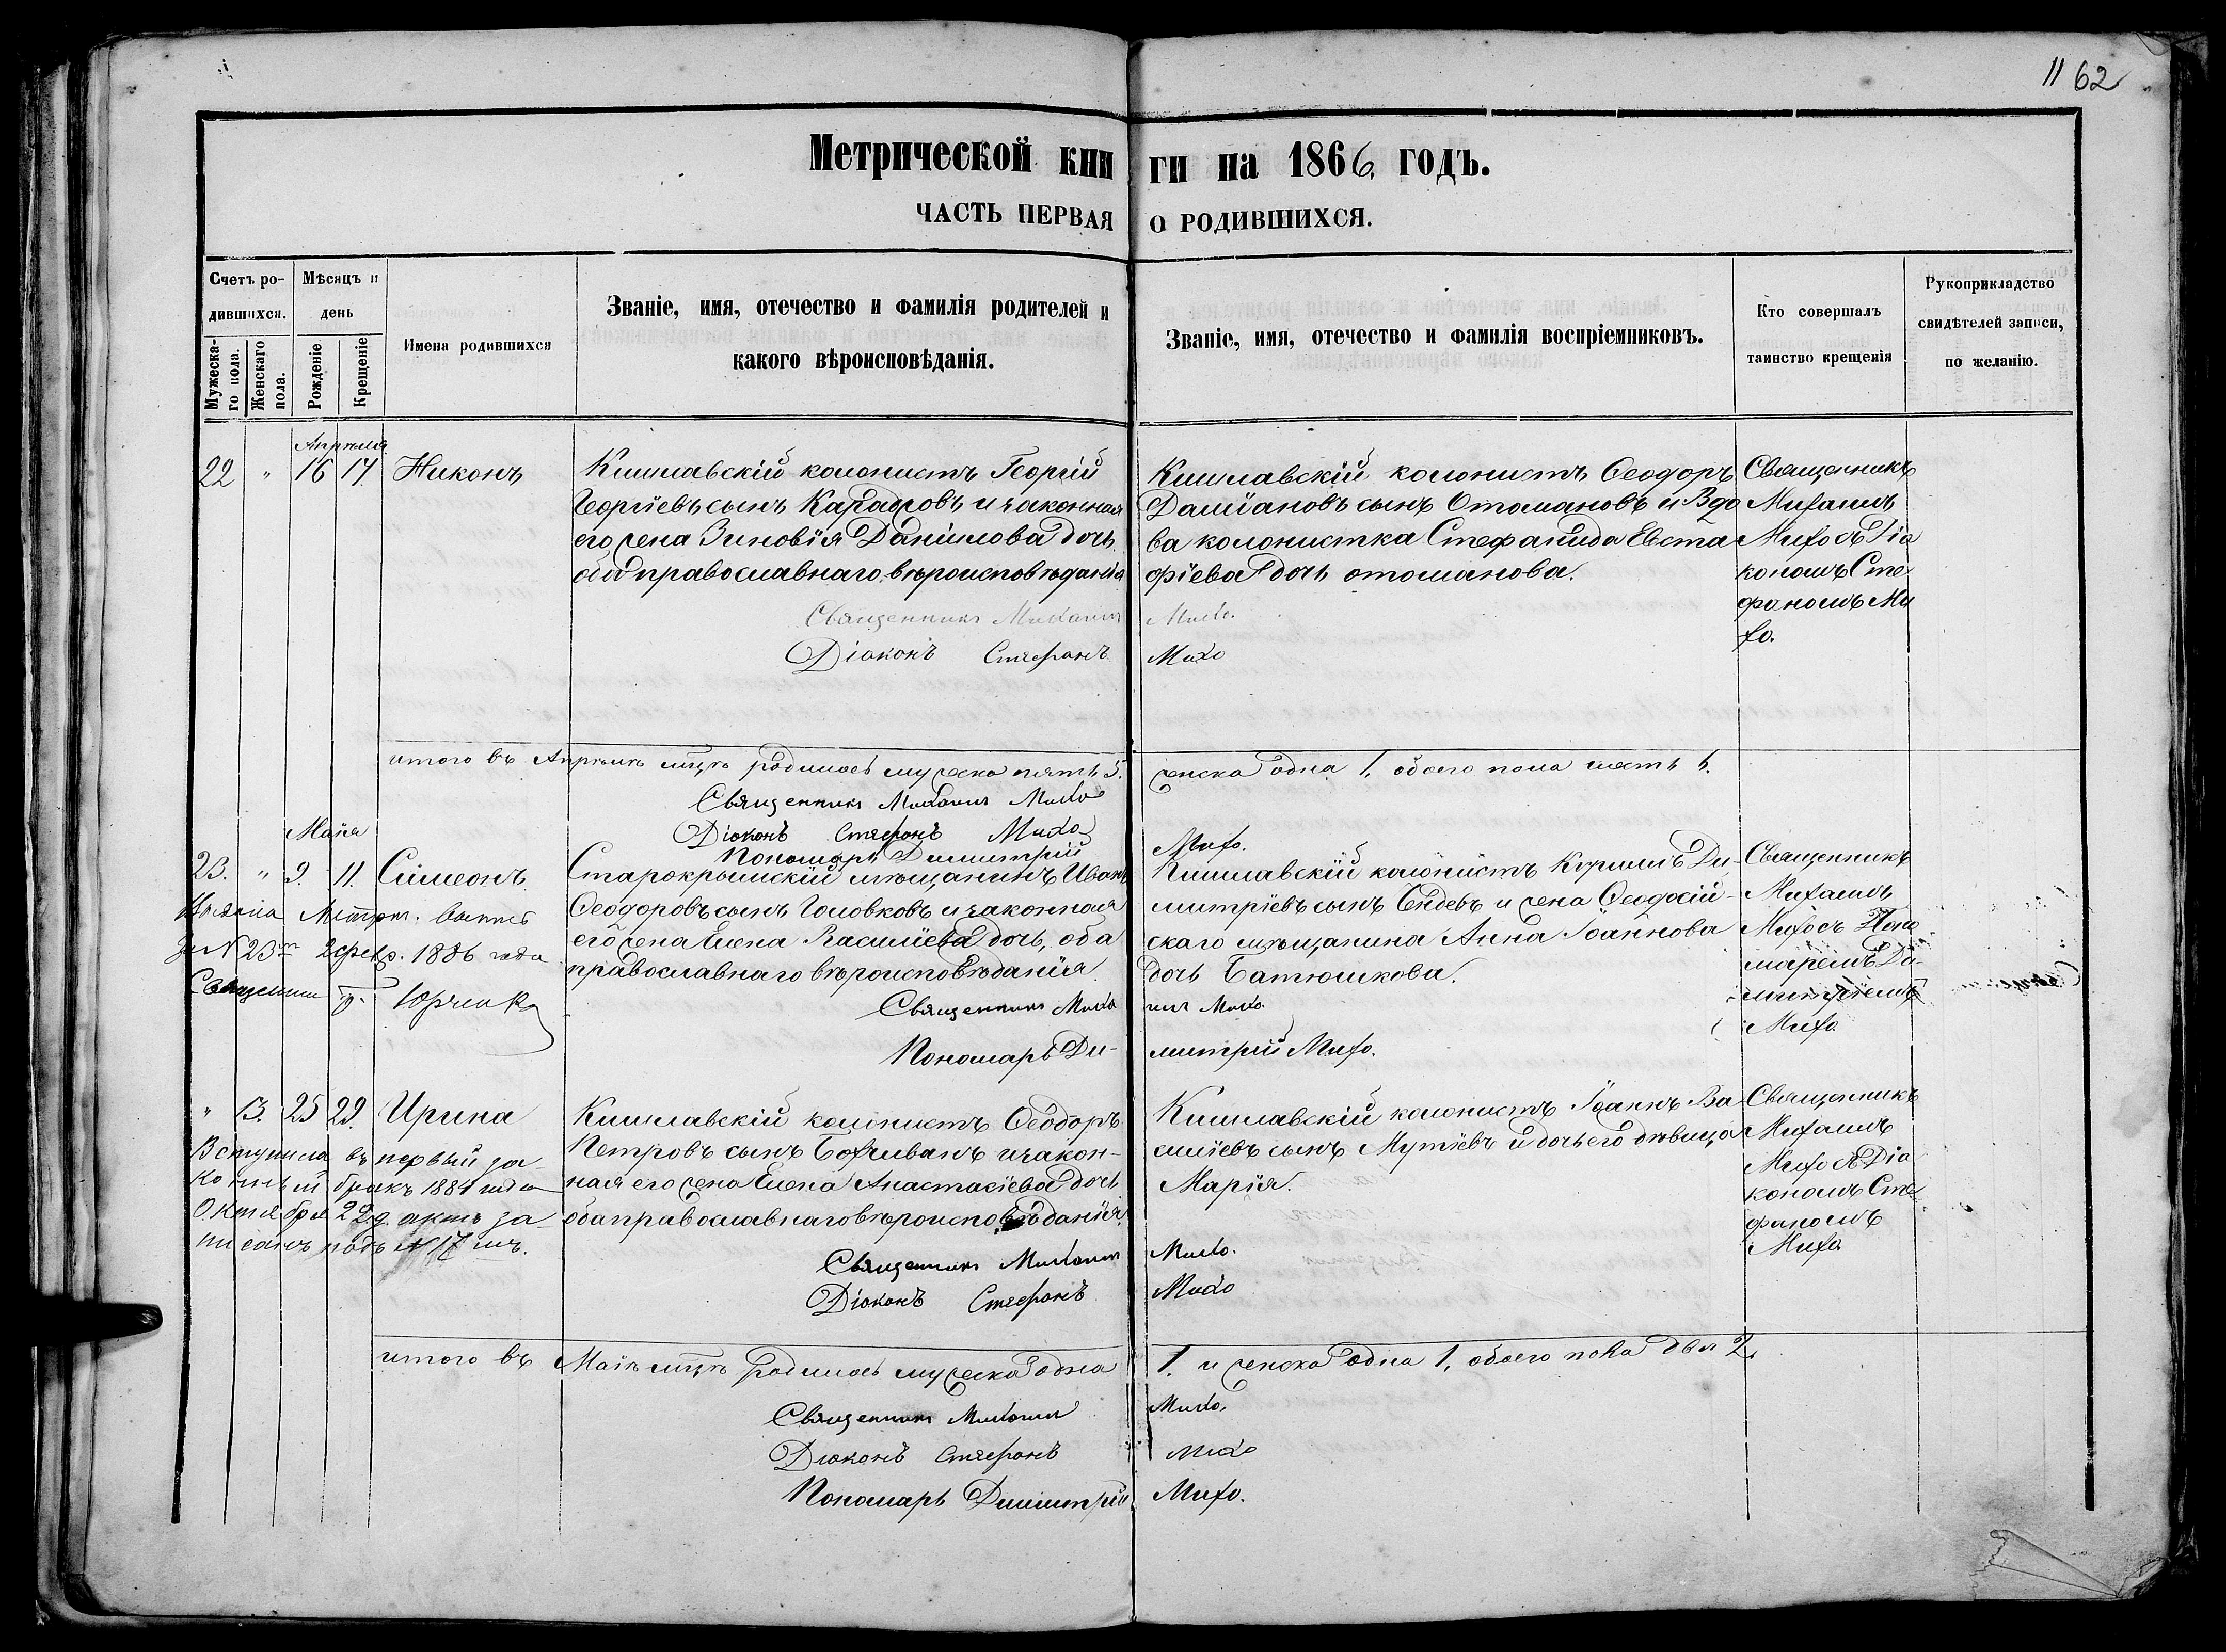 11 62
Метрической кни ги на 1866 годъ.
ЧАСТЬ ПЕРВАЯ О РОДИВШИХСЯ.
Счетъ ро-
дившихся.
Мужеска-
го пола.
Женскаго
пола.
Мѣсяцъ и
день
Рожденіе
Крещеніе
Имена родившихся
Званіе, имя, отечество и фамилія родителей и
какого вѣроисповѣданія.
Званіе, имя, отечество и фамилія воспріемниковъ.
Кто совершалъ
таинство крещенія
Рукоприкладство
свидѣтелей записи,
по желанію.
Апрѣля
22 " 16 17 Никонъ
Кишлавскій колонистъ Георгій
Георгіевъ сынъ и законная
его жена Зиновія Данилова дочь
оба православнаго вѣроисповѣданія
Священникъ Михаилъ Михо.
Діаконъ Стефанъ Михо
Кишлавскій колонистъ Ѳеодоръ
Даміановъ сынъ Отомановъ и Вдо
ва колонистка Стефанида Евста
фіева дочь отоманова.
Священникъ
Михаилъ
Михо съ Діа
кономъ Сте
фаномъ Ми
хо.
итого въ Апрѣлѣ мцѣ родилось мужеска пять 5. женска одна 1, обоего пола шесть 6.
Священникъ Михаилъ Михо
Діаконъ Стефанъ Михо
Пономарь Димитрій Михо.
Маія
23. " 9. 11. Симеонъ
Старокрымскій мѣщанинъ Иванъ
Ѳеодоровъ сынъ Головковъ и законная
его жена Елена Василіева дочь, оба
православнаго вѣроисповѣданія
Священникъ Михаилъ Михо
Пономарь Димитрій Михо.
Кишлавскій колонистъ Кирилъ Ди
митріевъ сынъ и жена Ѳеодосій-
скаго мѣщанина Анна Іоаннова
дочь Батюшкова.
Священникъ
Михаилъ
Михо съ Поно
маремъ Ди-
митріемъ
Михо
Выдана Метрич.
за N 23 2 февр. 1886 года
Священник
" 3. 25 29. Ирина
Кишлавскій колонистъ Ѳеодоръ
Петровъ сынъ и закон-
ная его жена Елена Анастасіева дочь
оба православнаго вѣроисповѣданія
Священникъ Михаилъ Михо.
Діаконъ Стефанъ Михо
Кишлавскій колонистъ Іоаннъ Ва
силіевъ сынъ Мутіевъ и дочь его дѣвица
Марія.
Священникъ
Михаилъ
Михо съ Діа
кономъ Сте
фаномъ
Михо
Вступила въ первый за-
конный бракъ 1884 года
Октября 22 д. актъ за-
писанъ подъ N 17 мъ.
итого въ Маіѣ мцѣ родилось мужеска одна 1. и женска одна 1, обоего пола два 2.
Священникъ Михаилъ Михо.
Діаконъ Стефанъ Михо
Пономарь Димитрій Михо.